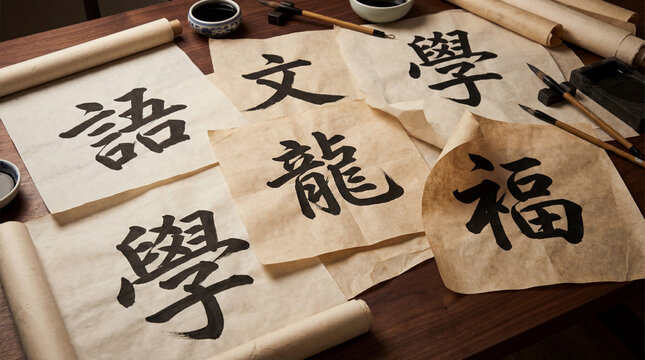 語
文
學
龍
福
學